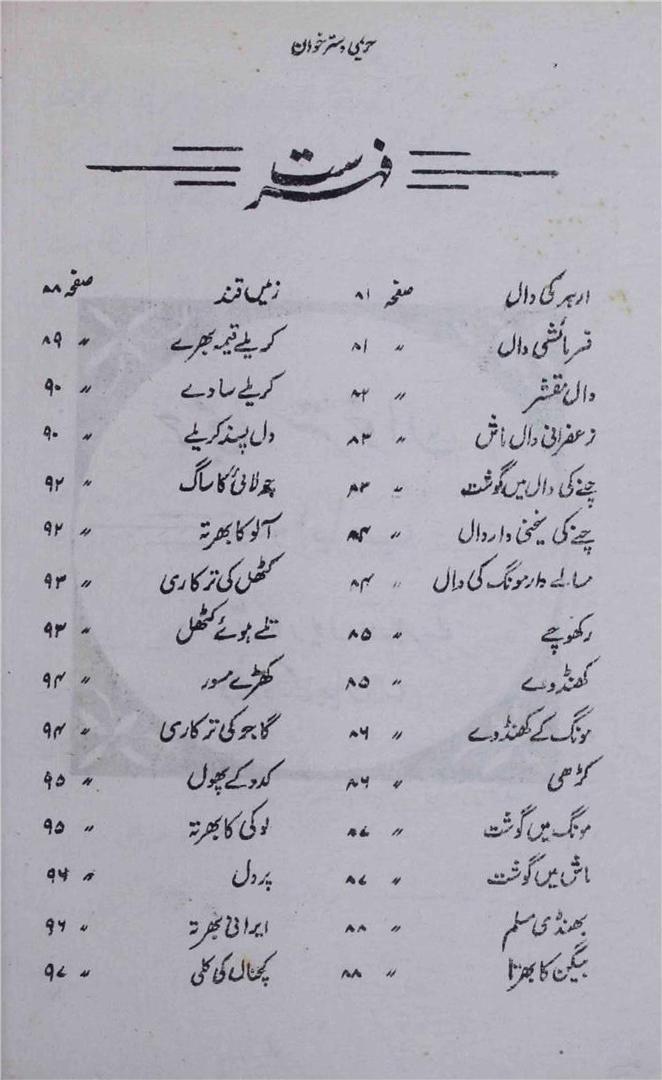 حویلی دسترخوان
فہرست
ارہر کی دال صفحہ ۸۱
فرمائشی دال 〃 ۸۱
دال مقشر 〃 ۸۲
زعفرانی دال ماش 〃 ۸۳
چنے کی دال میں گوشت 〃 ۸۳
چنے کی یخنی دار دال 〃 ۸۴
مسالے دار مونگ کی دال 〃 ۸۴
رکھوچے 〃 ۸۵
کھنڈوے 〃 ۸۵
مونگ کے کھنڈوے 〃 ۸۶
کڑھی 〃 ۸۶
مونگ میں گوشت 〃 ۸۷
ماش میں گوشت 〃 ۸۷
بھنڈی مسلم 〃 ۸۸
بیگن کا بھرتا 〃 ۸۸
زمیں قند صفحہ ۸۸
کریلے قیمہ بھرے 〃 ۸۹
کریلے سادے 〃 ۹۰
دل پسند کریلے 〃 ۹۰
چولائی کا ساگ 〃 ۹۲
آلو کا بھرتہ 〃 ۹۲
کٹھل کی ترکاری 〃 ۹۳
تلے ہوئے کٹھل 〃 ۹۳
کھڑے مسور 〃 ۹۴
گاجر کی ترکاری 〃 ۹۴
کدو کے پھول 〃 ۹۵
لوکی کا بھرتہ 〃 ۹۵
پردل 〃 ۹۶
ایرانی بھرتہ 〃 ۹۶
کچنال کی کلی 〃 ۹۷